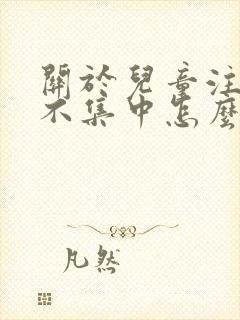 關於兒童注
不集中怎麼
凡然